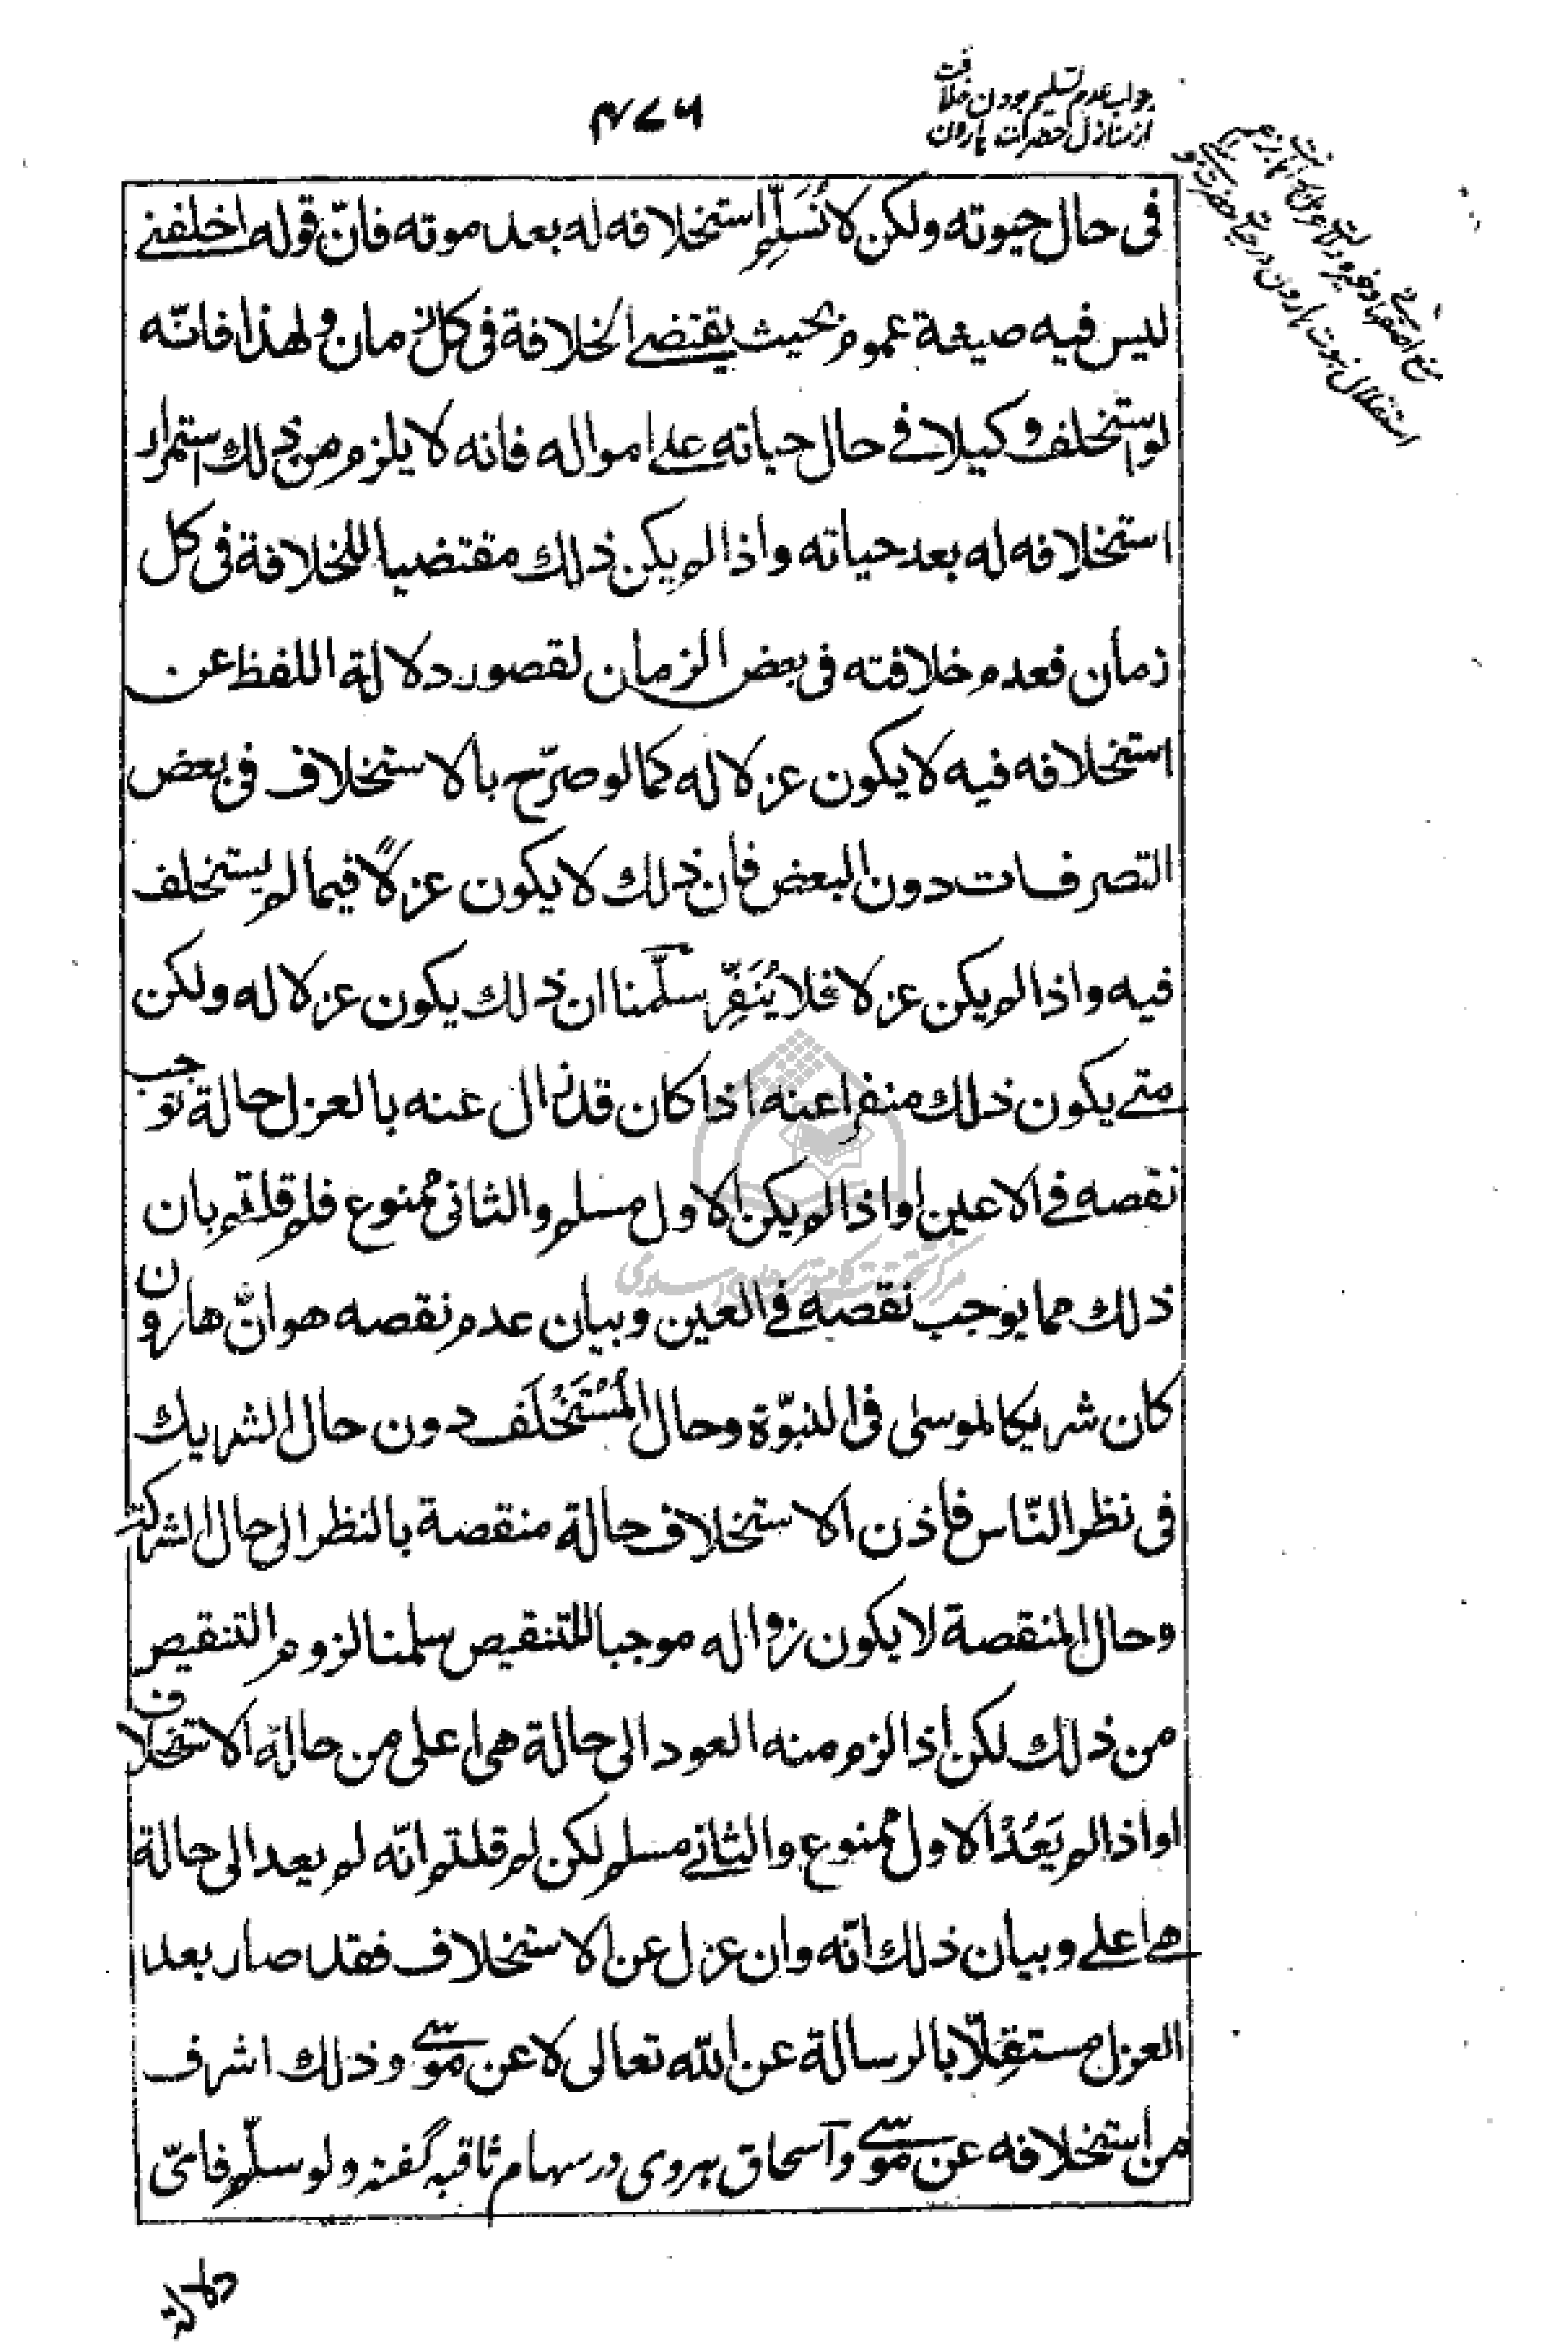 جواب عدم تسلیم بودن خلافت
از منازل حضرت هارون
۴۷۶
فی حال حیوته ولکن لا نُسَلِّم استخلافه له بعد موته فانّ قوله اخلفنے
لیس فیه صیغة عموم بحیث یقتضے الخلافة فی کل زمان ولهذا فانّه
لو استخلف وکیلا فے حال حیاته علے امواله فانه لا یلزم من ذلك استمرار
استخلافه له بعد حیاته واذا لم یکن ذلك مقتضیا للخلافة فی کل
زمان فعدم خلافته فی بعض الزمان لقصور دلالة اللفظ عن
استخلافه فیه لا یکون عزلا له کما لو صرّح بالاستخلاف فی بعض
التصرفات دون البعض فان ذلك لا یکون عزلاً فیما لم یستخلف
فیه واذا لم یکن عزلا فلا یُنَفِّر سلّمنا ان ذلك یکون عزلا له ولکن
متے یکون ذلك منفرا عنه اذا کان قد زال عنه بالعزل حالة توجب
نقصه فے الاعین او اذا لم یکن الاول مسلم والثانی ممنوع فلم قلتم بان
ذلك مما یوجب نقصه فے العین وبیان عدم نقصه هو انّ هارون
کان شریکا لموسیٰ فی النبوّة وحال المُسْتَخْلَف دون حال الشریك
فی نظر النّاس فاذن الاستخلاف حالة منقصة بالنظر الی حال الشرکة
وحال المنقصة لا یکون زواله موجبا للتنقیص سلمنا لزوم التنقیص
من ذلك لکن اذا لزم منه العود الی حالة هی اعلی من حالة الاستخلاف
او اذا لم یَعُدْ الاول ممنوع والثانے مسلم لکن لم قلتم انّه لم یعد الی حالة
هے اعلے وبیان ذلك انّه وان عزل عن الاستخلاف فقد صار بعد
العزل مستقِلّا بالرسالة عن اللّه تعالی لا عن موسے وذلك اشرف
من استخلافه عن موسے وآسحاق هروی در سهام ثاقبه گفته ولو سلّم فایّ
دلالة